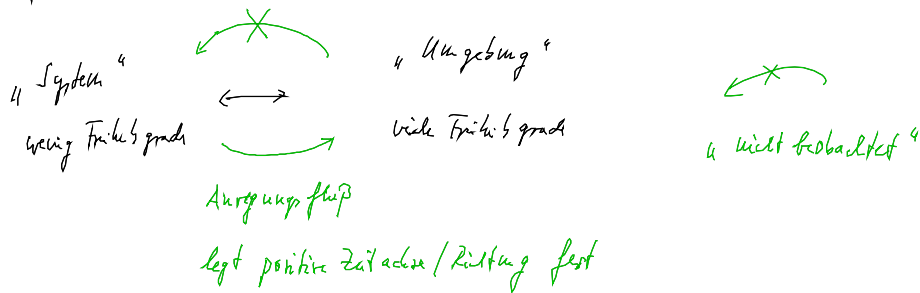 „Umgebung“
„System“
wenig Freiheitsgrade
viele Freiheitsgrade
„nicht beobachtet“
Anregungsfluß
legt positive Zeitachse/Richtung fest